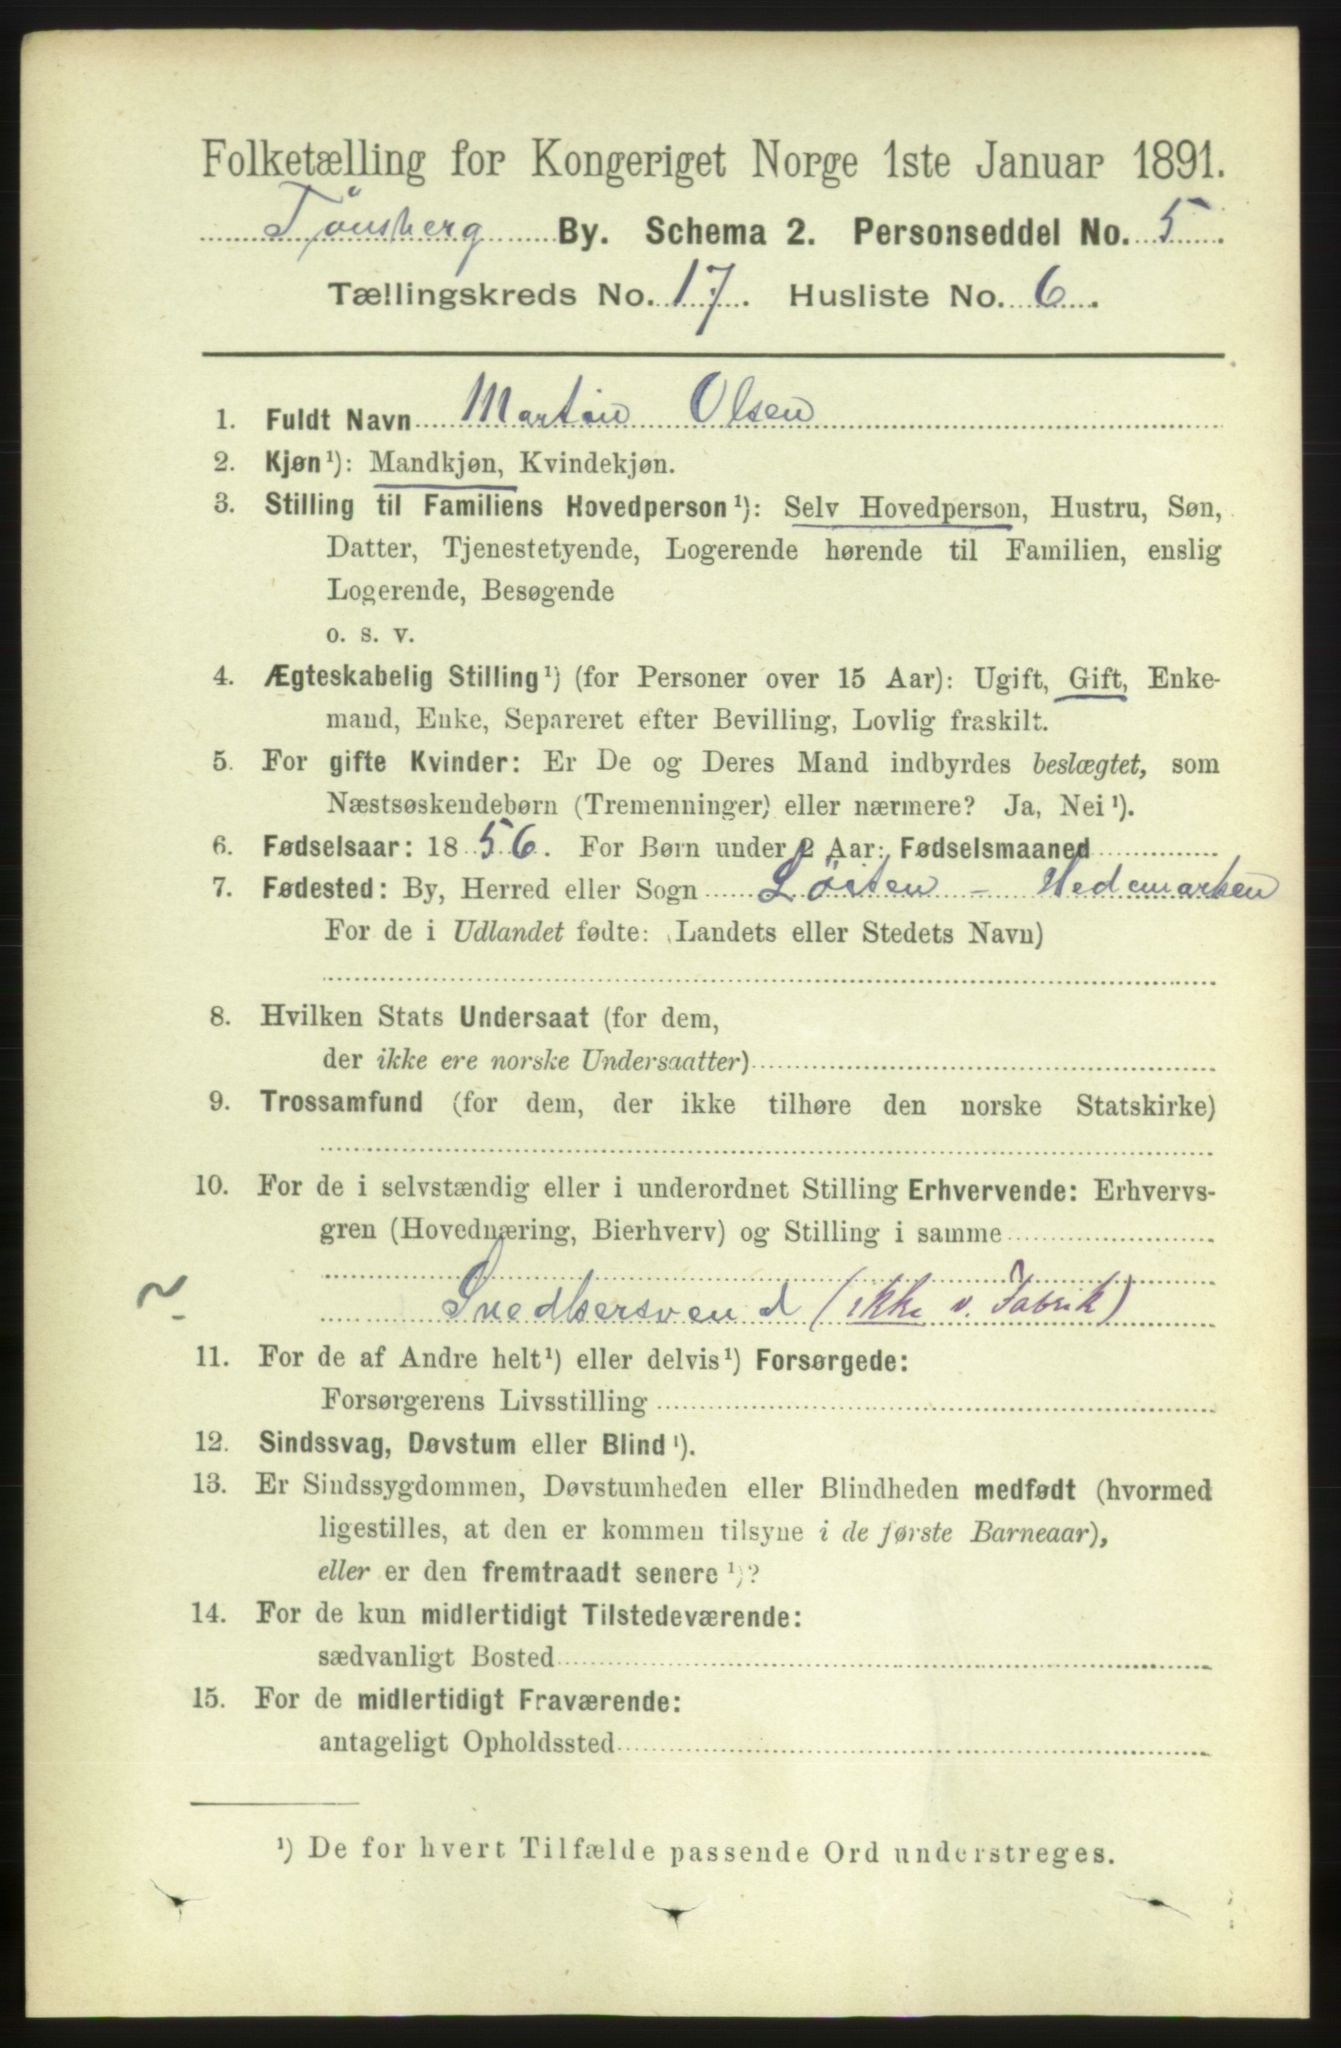 Folketælling for Kongeriget Norge 1ste Januar 1891.
Tønsberg By. Schema 2. Personseddel No. 5
Tællingskreds No. 17. Husliste No. 6.
1. Fuldt Navn Martin Olsen
2. Kjøn¹): Mandkjøn, Kvindekjøn.
3. Stilling til Familiens Hovedperson¹): Selv Hovedperson, Hustru, Søn,
Datter, Tjenestetyende, Logerende hørende til Familien, enslig
Logerende, Besøgende
o. s. v.
4. Ægteskabelig Stilling¹) (for Personer over 15 Aar): Ugift, Gift, Enke-
mand, Enke, Separeret efter Bevilling, Lovlig fraskilt.
5. For gifte Kvinder: Er De og Deres Mand indbyrdes beslægtet, som
Næstsøskendebørn (Tremenninger) eller nærmere? Ja, Nei¹).
6. Fødselsaar: 1856. For Børn under 2 Aar: Fødselsmaaned
7. Fødested: By, Herred eller Sogn Löiten - Hedemarken
For de i Udlandet fødte: Landets eller Stedets Navn)
8. Hvilken Stats Undersaat (for dem,
der ikke ere norske Undersaatter)
9. Trossamfund (for dem, der ikke tilhøre den norske Statskirke)
10. For de i selvstændig eller i underordnet Stilling Erhvervende: Erhvervs-
gren (Hovednæring, Bierhverv) og Stilling i samme
Snedkersvend (ikke v. Fabrik)
11. For de af Andre helt¹) eller delvis¹) Forsørgede:
Forsørgerens Livsstilling
12. Sindssvag, Døvstum eller Blind¹).
13. Er Sindssygdommen, Døvstumheden eller Blindheden medfødt (hvormed
ligestilles, at den er kommen tilsyne i de første Barneaar),
eller er den fremtraadt senere¹)?
14. For de kun midlertidigt Tilstedeværende:
sædvanligt Bosted
15. For de midlertidigt Fraværende:
antageligt Opholdssted
¹) De for hvert Tilfælde passende Ord understreges.